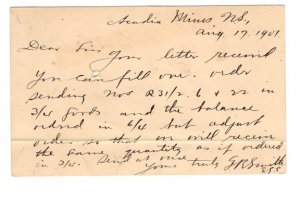 Acadia Mines NS,
Aug 17. 1901
Dear Sirs Your letter received
You can fill one order
sending Nos 231/2. 6 & 22 in
3/4 goods and the balance
ordrd in 6/4 but adjust
order so that we will receive
the same quantity as if ordered
in 3/4. Send at once
Yours truly